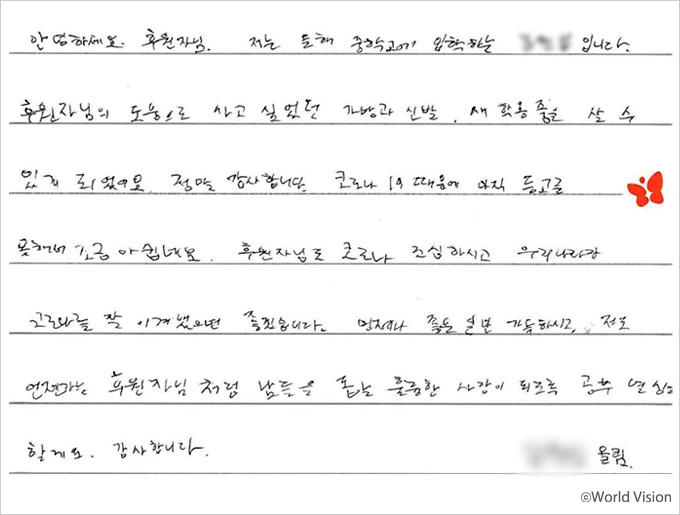 안녕하세요. 후원자님. 저는 올해 중학교에 입학하는 입니다.
후원자님의 도움으로 사고 싶었던 가방과 신발, 새 학용품을 살 수
있게 되었어요. 정말 감사합니다. 코로나 19 때문에 아직 등교를
못해서 조금 아쉽네요. 후원자님도 코로나 조심하시고 우리나라가
코로나를 잘 이겨냈으면 좋겠습니다. 언제나 좋은 일만 가득하시고, 저도
언젠가는 후원자님 처럼 남들을 돕는 훌륭한 사람이 되도록 공부 열심히
할게요. 감사합니다.
올림.
©World Vision